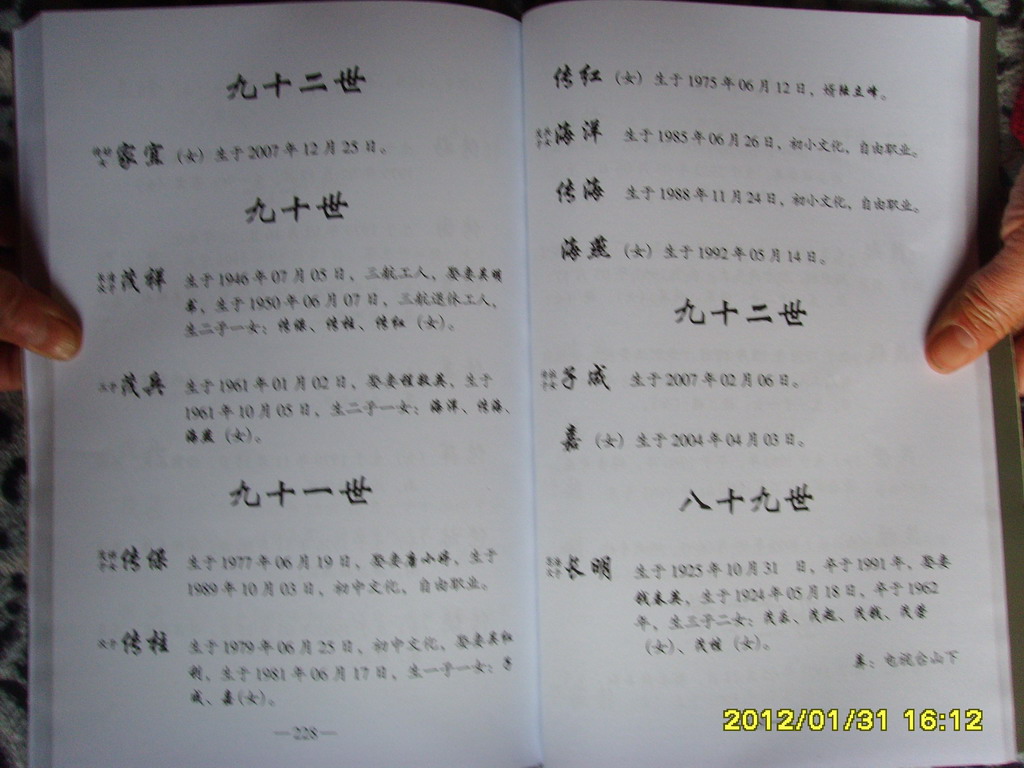 九十二世
家宜 (女) 生于 2007 年 12 月 25 日。
九十世
茂祥 生于 1946 年 07 月 05 日, 三航工人, 娶妻吴明
生于 1950 年 06 月 07 日, 三航退休工人,
生二子一女: 传保、传柱、传红 (女)。
茂兵 生于 1961 年 01 月 02 日, 娶妻程教英, 生于
1961 年 10 月 05 日, 生二子一女: 海洋、传海、
海燕 (女)。
九十一世
传保 生于 1977 年 06 月 19 日, 娶妻唐小婷, 生于
1989 年 10 月 03 日, 初中文化, 自由职业。
次子 传柱 生于 1979 年 06 月 25 日, 初中文化, 娶妻吴红
生于 1981 年 06 月 17 日, 生一子一女: 子
成、嘉(女)。
—228—
传红 (女) 生于 1975 年 06 月 12 日, 婿陆立峰。
海洋 生于 1985 年 06 月 26 日, 初小文化, 自由职业。
传海 生于 1988 年 11 月 24 日, 初小文化, 自由职业。
海燕 (女) 生于 1992 年 05 月 14 日。
九十二世
子成 生于 2007 年 02 月 06 日。
嘉 (女) 生于 2004 年 04 月 03 日。
八十九世
长明 生于 1925 年 10 月 31 日, 卒于 1991 年, 娶妻
钱春英, 生于 1924 年 05 月 18 日, 卒于 1962
年, 生三子二女: 茂乐、茂起、茂钱、茂荣
(女)、茂桂 (女)。
葬: 电视台山下
2012/01/31 16:12